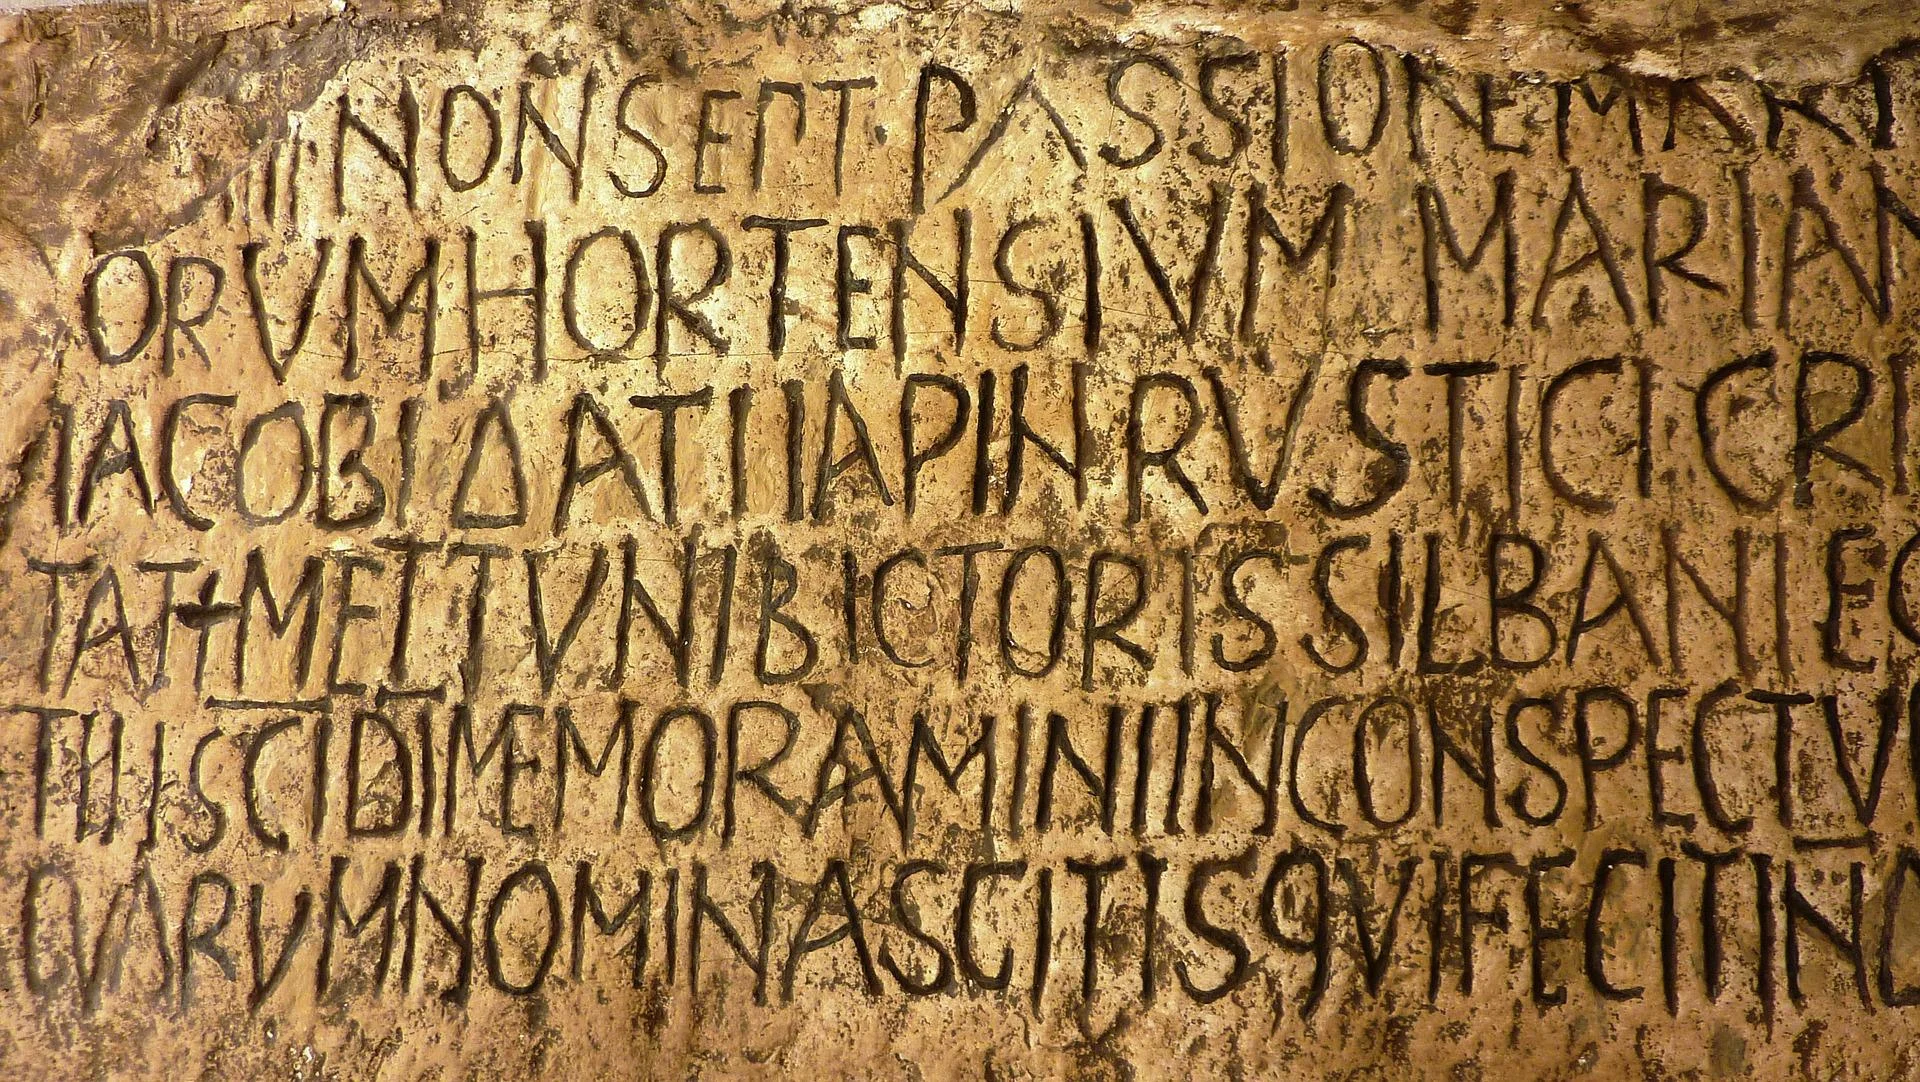 III NON SEPT · PASSIONE MARTVR
ORVM HORTENSIVM MARIAN
IACOBI ΔATI IAPIN RVSTICI CRI
TAT + METTVNI BICTORIS SILBANI EG
TII SCI DI MEMORAMINI IN CONSPECTV
QVARVM NOMINA SCIT IS QVI FECIT IN